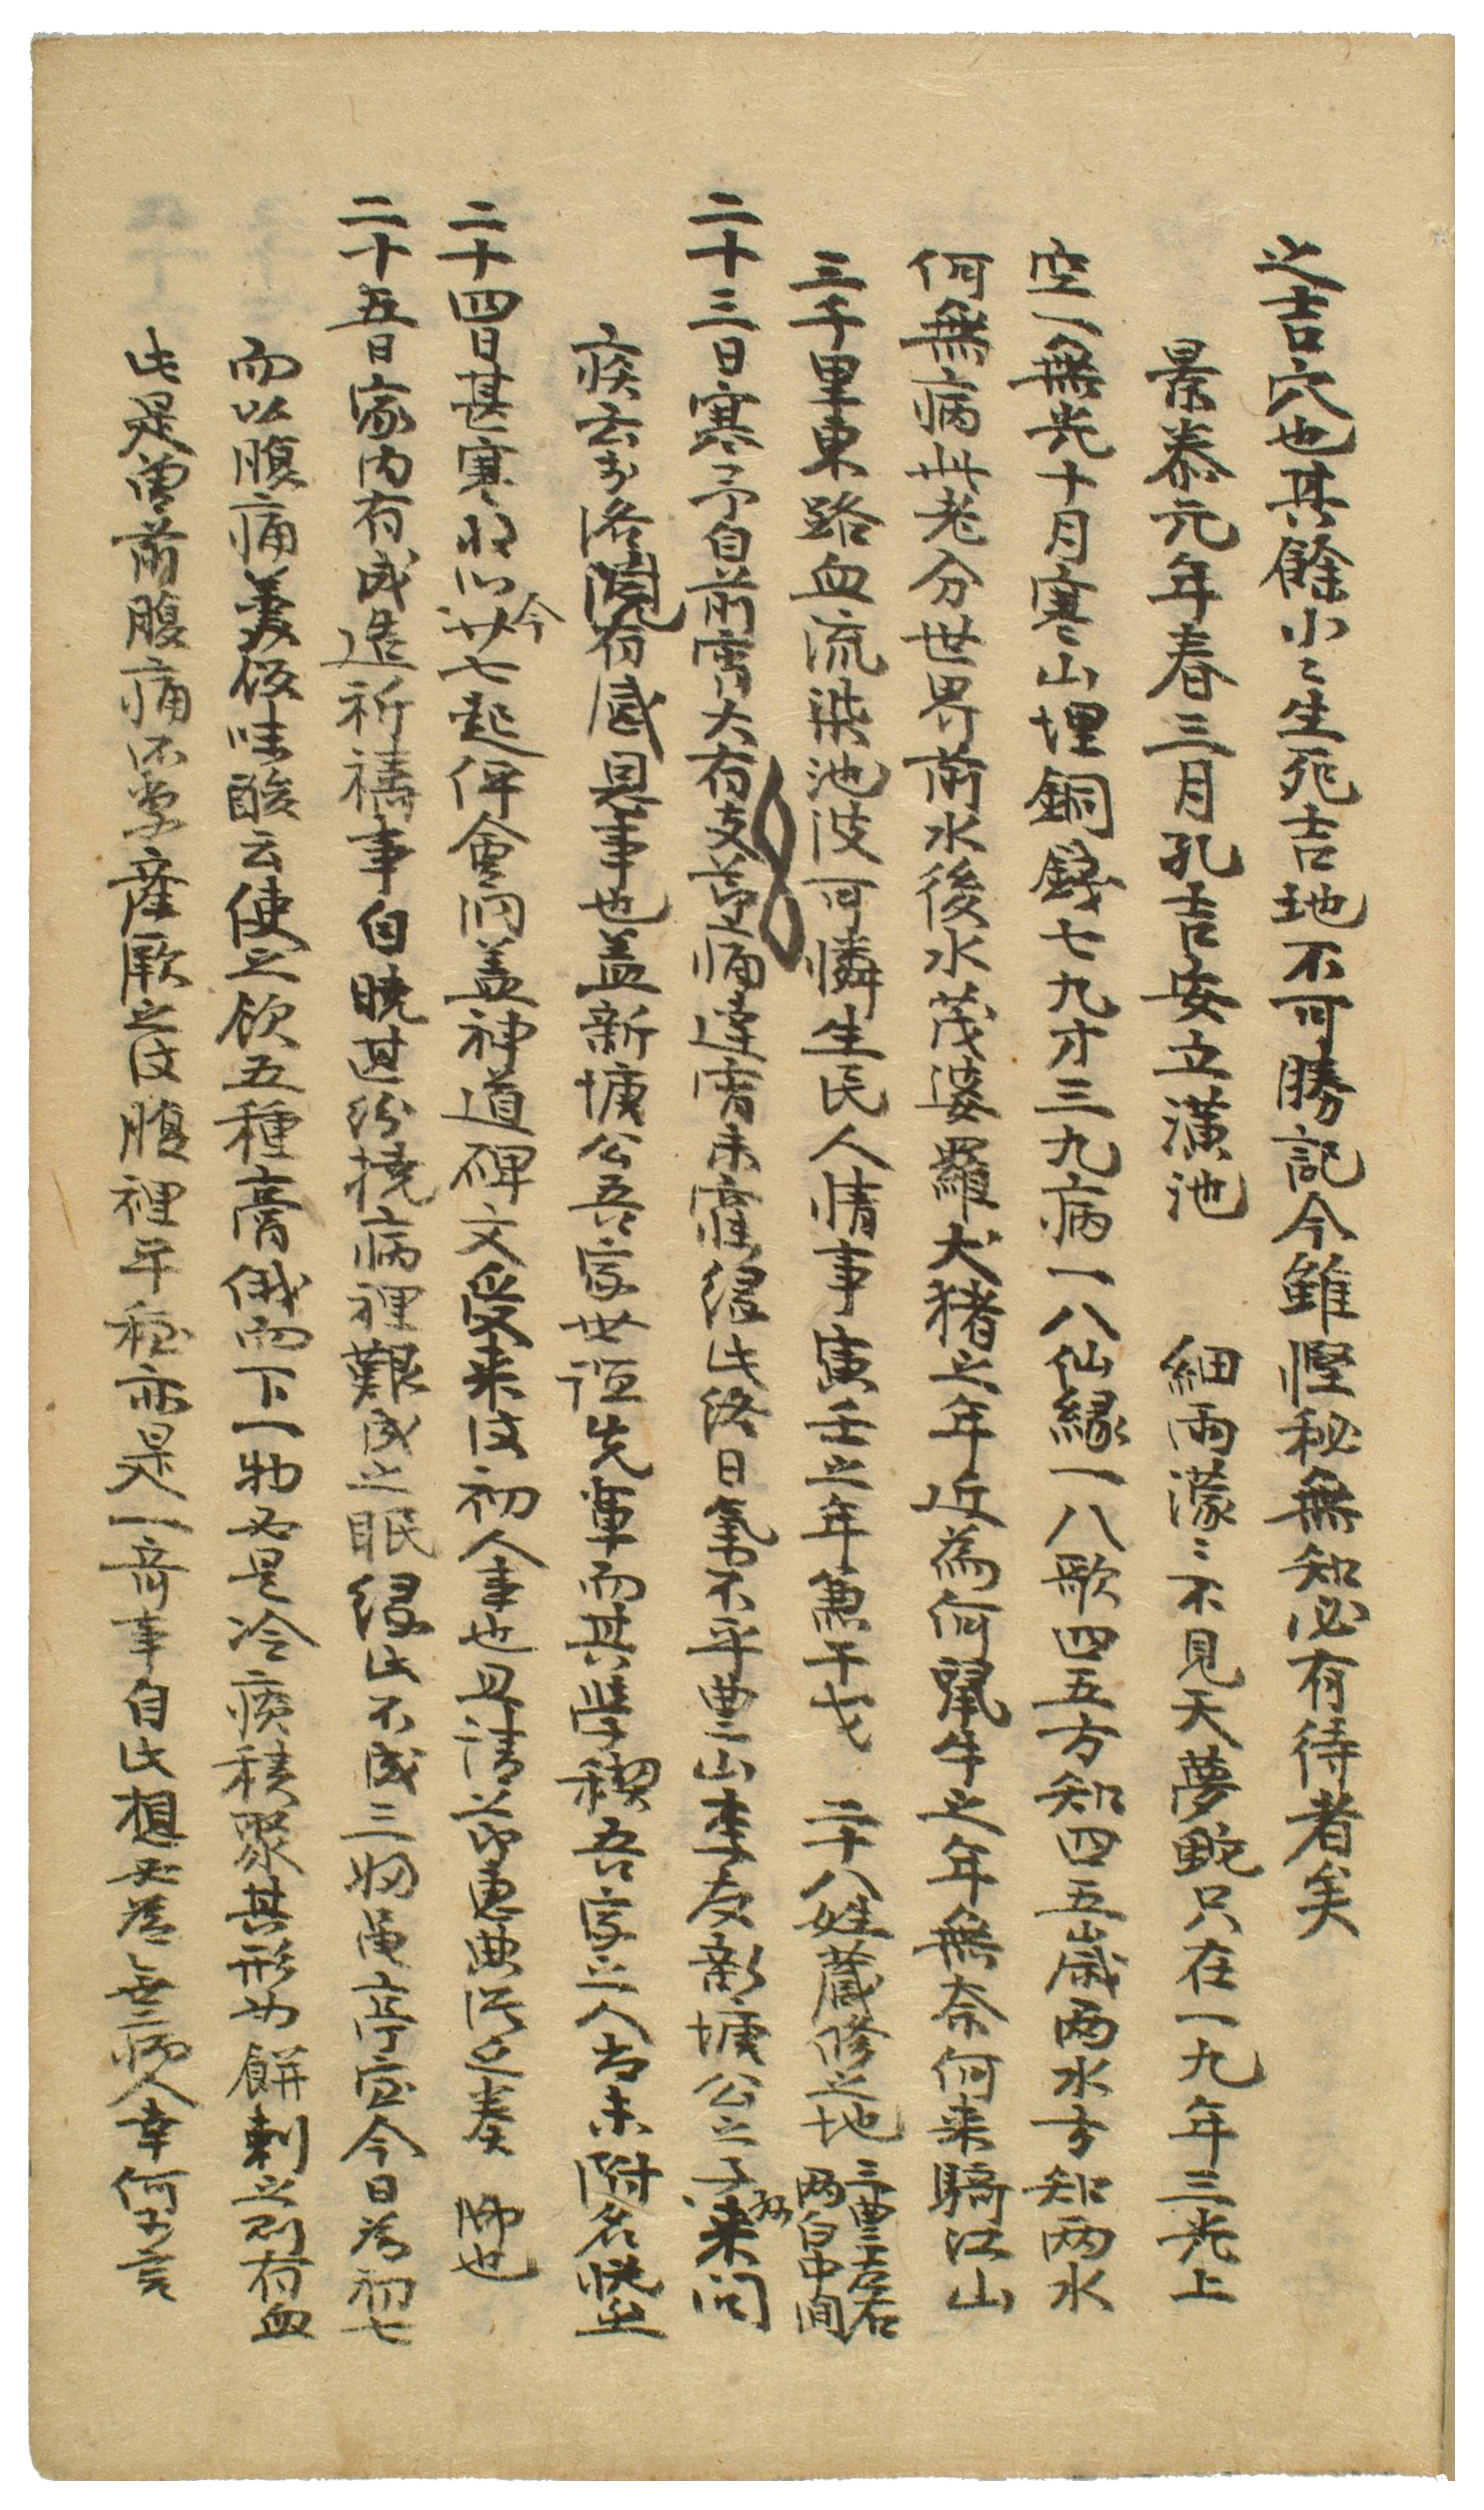 之吉穴也其餘小〻生死吉地不可勝記今雖慳秘無知必有待者矣
景泰元年春三月孔吉安立潢池 細雨濛〻不見天夢魂只在一九年三光上
空一無光十月寒山埋銅錢七九才三九病一八仙緣一八歌四五方知四五歲兩水方知兩水
何無病卅老分世界前水後水茂婆羅犬猪之年近為何鼠牛之年無奈何来騎江山
三千里東路血流染池波可憐生民人情事寅壬之年無干戈 二十八姓蔵修之地三豊三吉石兩白中间
二十三日寒予自前宵大有支莖痛達宵未寐緣此終日氣不平豊山李友新塘公之子来问
疾去水洛院有感恩事也盖新塘公吾家世誼先輩而其學稧吾家之人尚未附名恍坐
二十四日甚寒水以今廿七起伻會问盖神道碑文受来後初人事也且請前惠典洪之奏 师也
二十五日家内有成造祈禱事自曉甚紛撓病裡艱成之眠緣此不成三物甬亭宦今日为初七
而以腹痛羹飯味酸云使之飲五種膏俄而下一物必是冷痰積聚其形如餠刺之則有血
此是曾前腹痛不宁産厥之後腹裡平穏亦是一奇事自此想必为無病人幸何可言